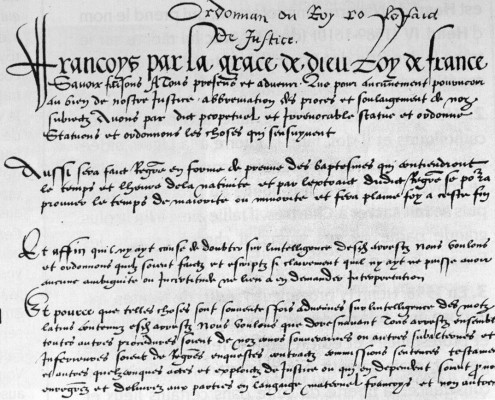 Ordonnan du Roy
de Justice.
Francoys par la grace de dieu Roy de france
Savoir faisons A Tous presens et advenir. Que pour aucunement pourveoir
au bien de nostre Justice abbreviation des proces et soulagement de noz
subiectz Avons par edict perpetuel et Irrevocable statué et ordonné
Statuons et ordonnons les choses qui sensuyvent
Aussi sera faict Regre en forme de preuve des baptesmes qui contiendront
le temps et lheure de la nativité et par lextraict dudict Regre se pora
prouver le temps de maiorité ou minorité et fera plaine foy a ceste fin
Et affin quil ny ayt cause de doubter sur lintelligence desdz arrestz Nous voulons
et ordonnons quilz soient faictz et escriptz si clairement quil ny ayt ne puisse avoir
aucune ambiguité ou Incertitude ne lieu a en demander Interpretation
Et pource que telles choses sont souventesfois advenues sur lintelligence des motz
latins contenuz esdz arrestz Nous voulons que doresnavant Tous arrestz ensemble
toutes autres procedures soient de noz cours souveraines ou autres subalternes et
Inferieures soient de Regres enquestes contractz commissions sentences testame
et autres quelzconques actes et exploictz de Justice ou qui en dependent soient pno
enregrez et delivrez aux parties en langaige maternel francoys et non autre